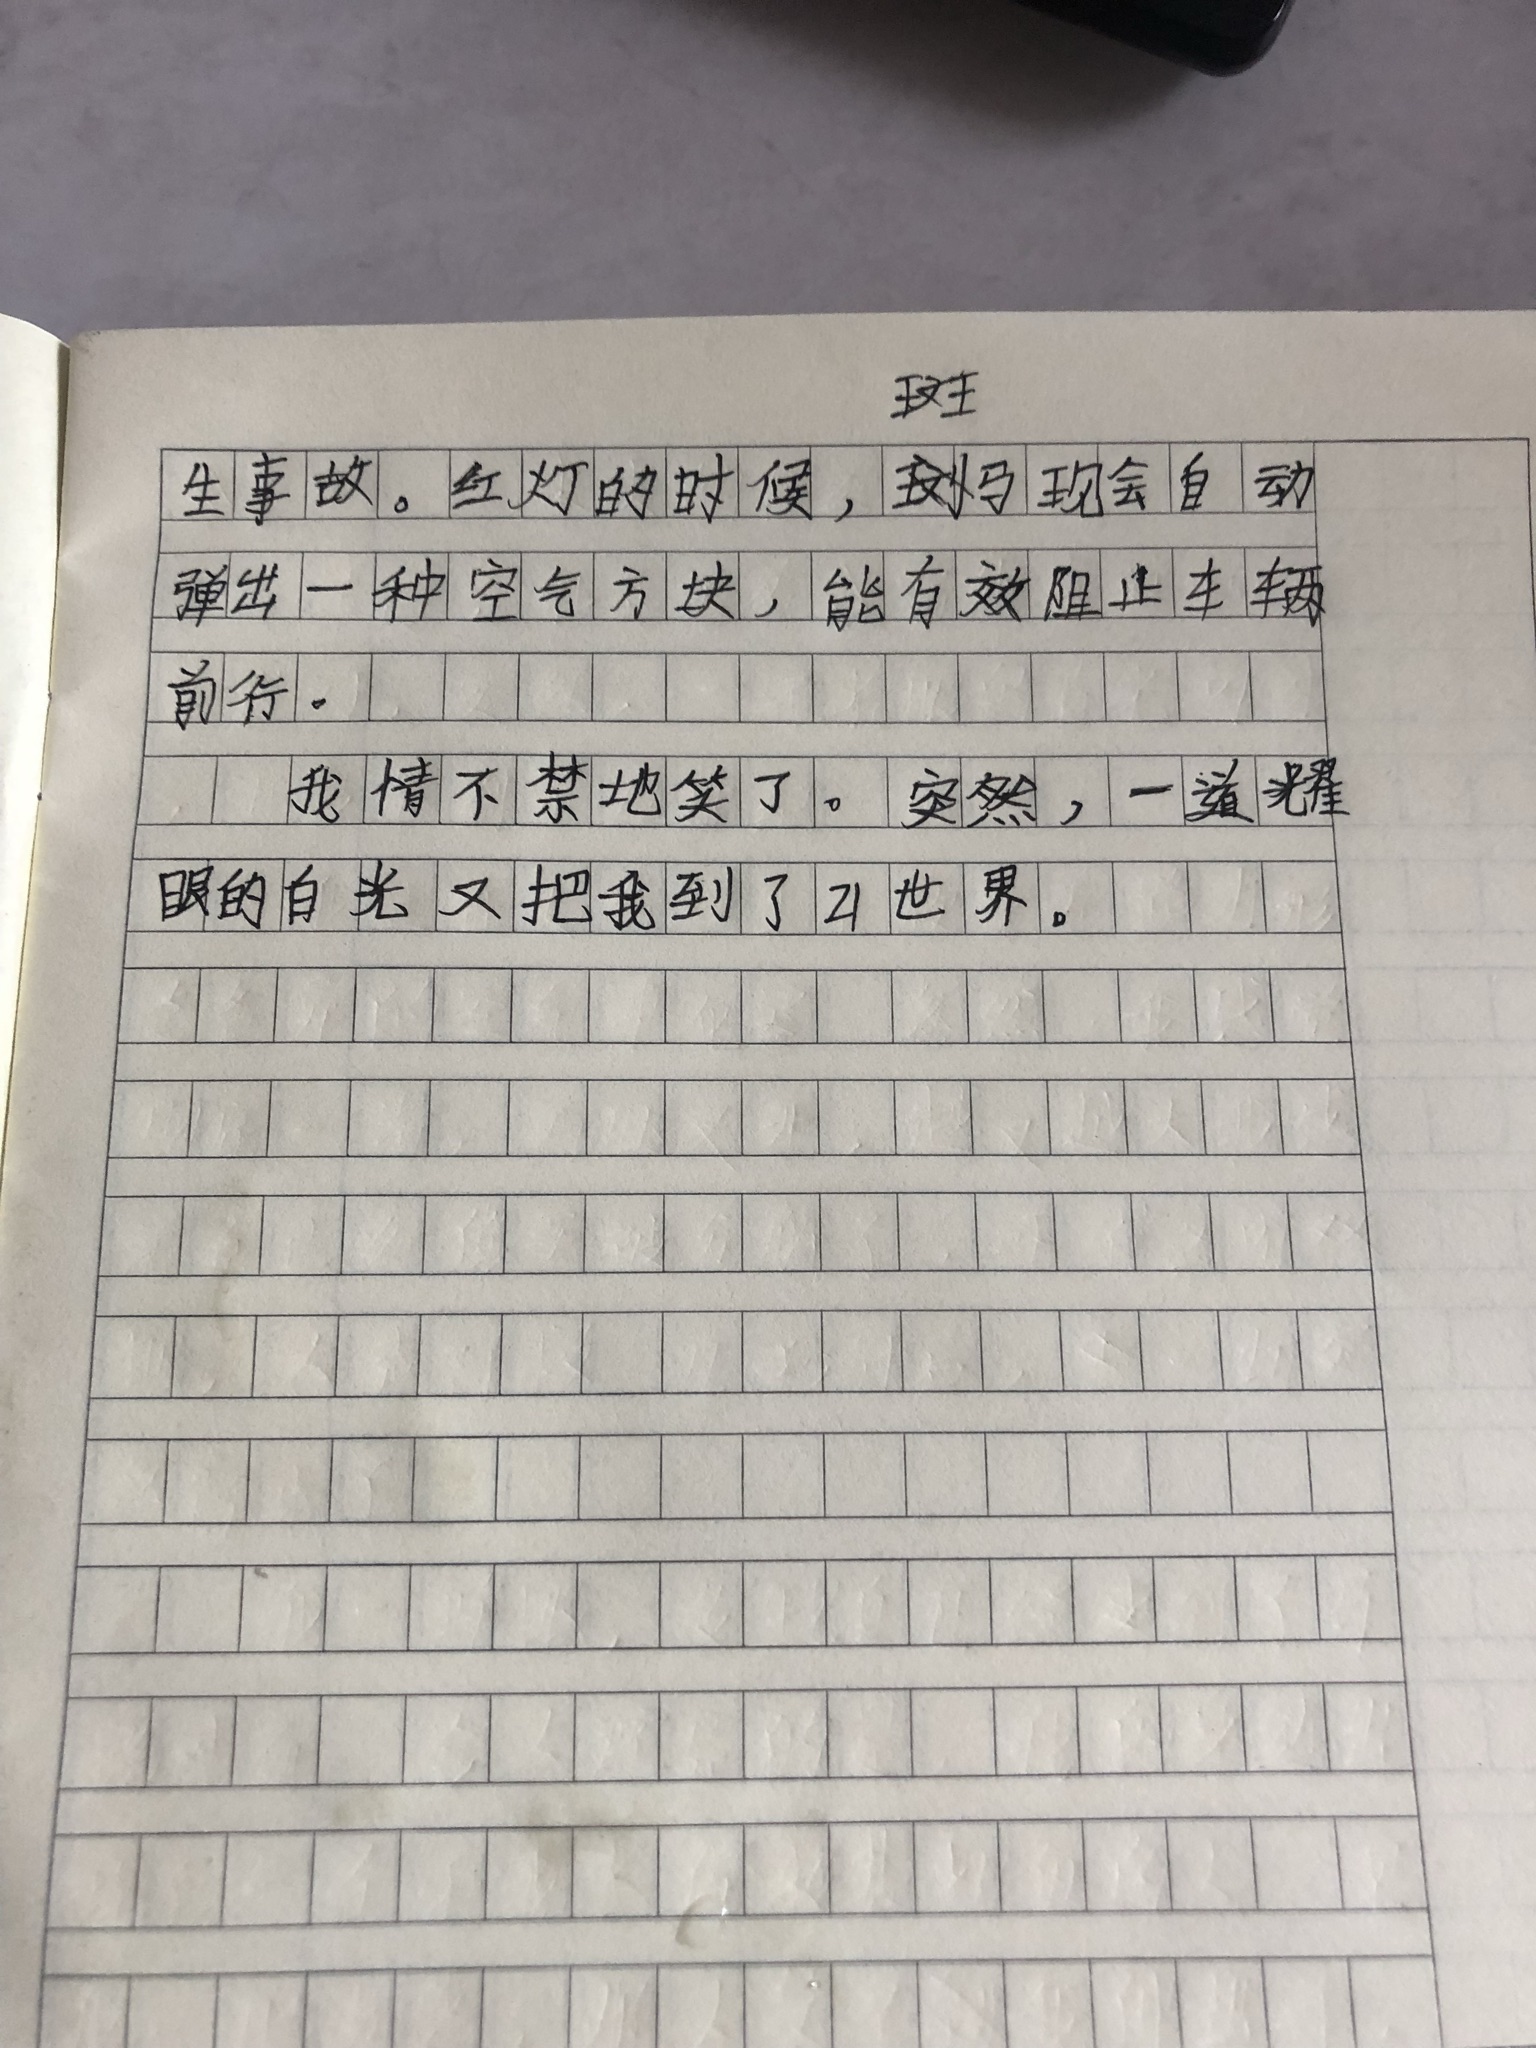 斑
生事故。红灯的时候，斑妈现会自动
弹出一种空气方块，能有效阻止车辆
前行。
我情不禁地笑了。突然，一道耀
眼的白光又把我到了21世界。